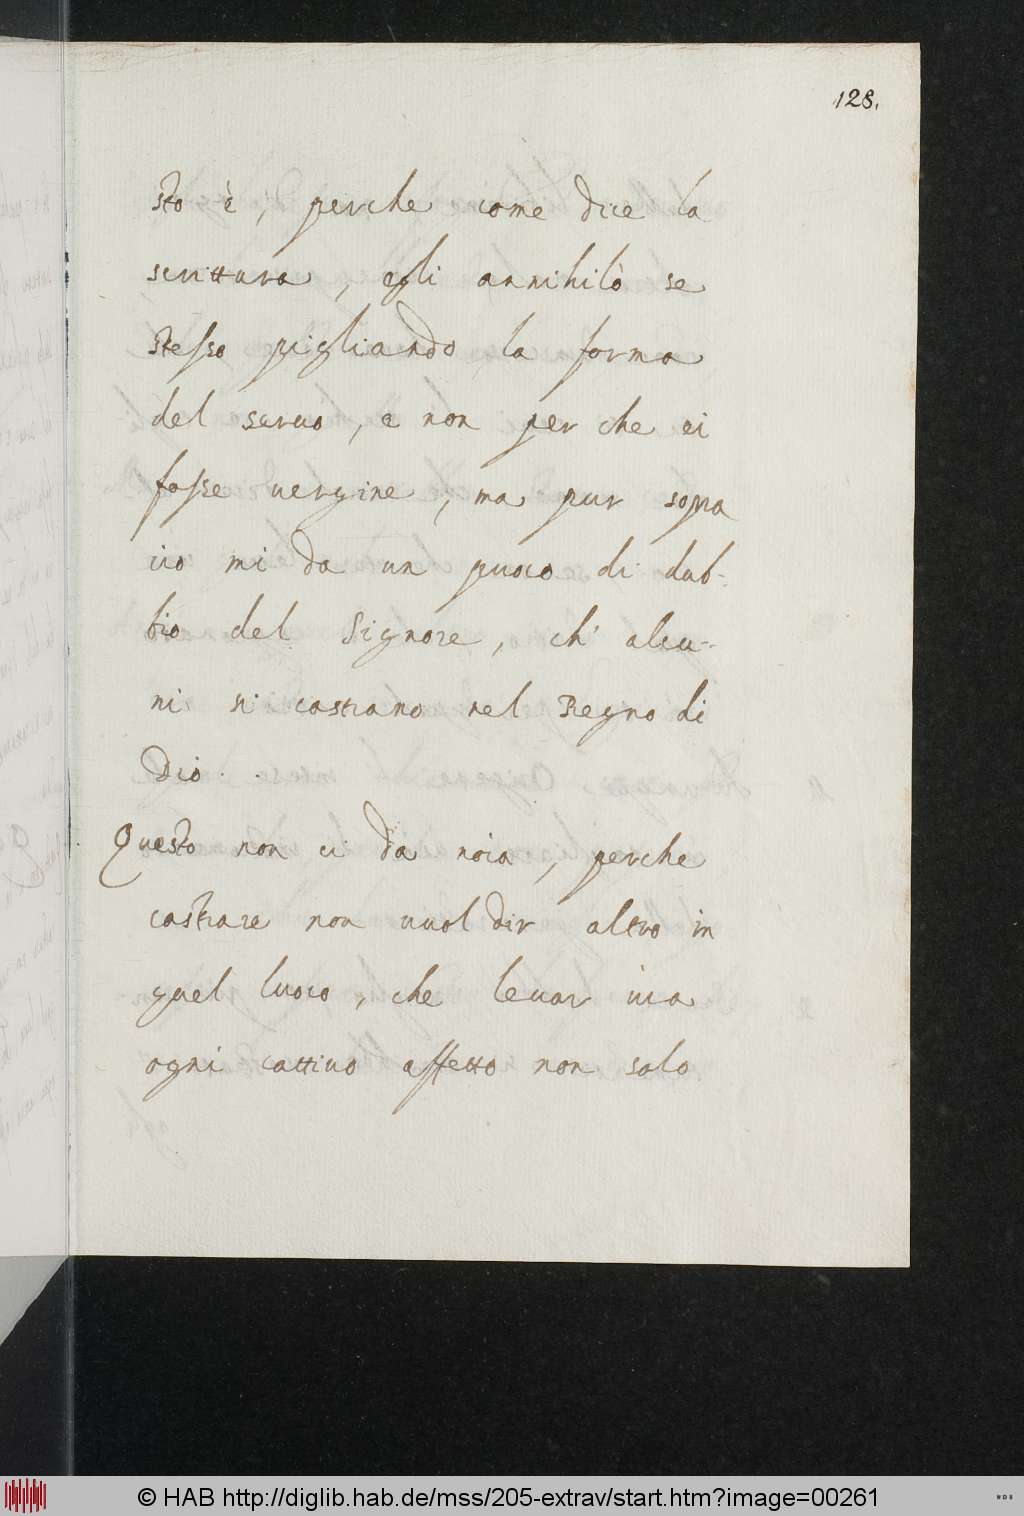 128.
sto è, perche come dice la
scrittura, egli annihilò se
stesso pigliando la forma
del seruo, e non per che ei
fosse uergine, ma pur sopra
cio mi da un puoco di dub-
bio del Signore, ch' alcu-
ni si castrano nel Regno di
Dio.
Questo non ci da noia, perche
castrare non uuol dir altro in
quel luoco, che leuar uia
ogni cattiuo affetto non solo
© HAB http://diglib.hab.de/mss/205-extrav/start.htm?image=00261